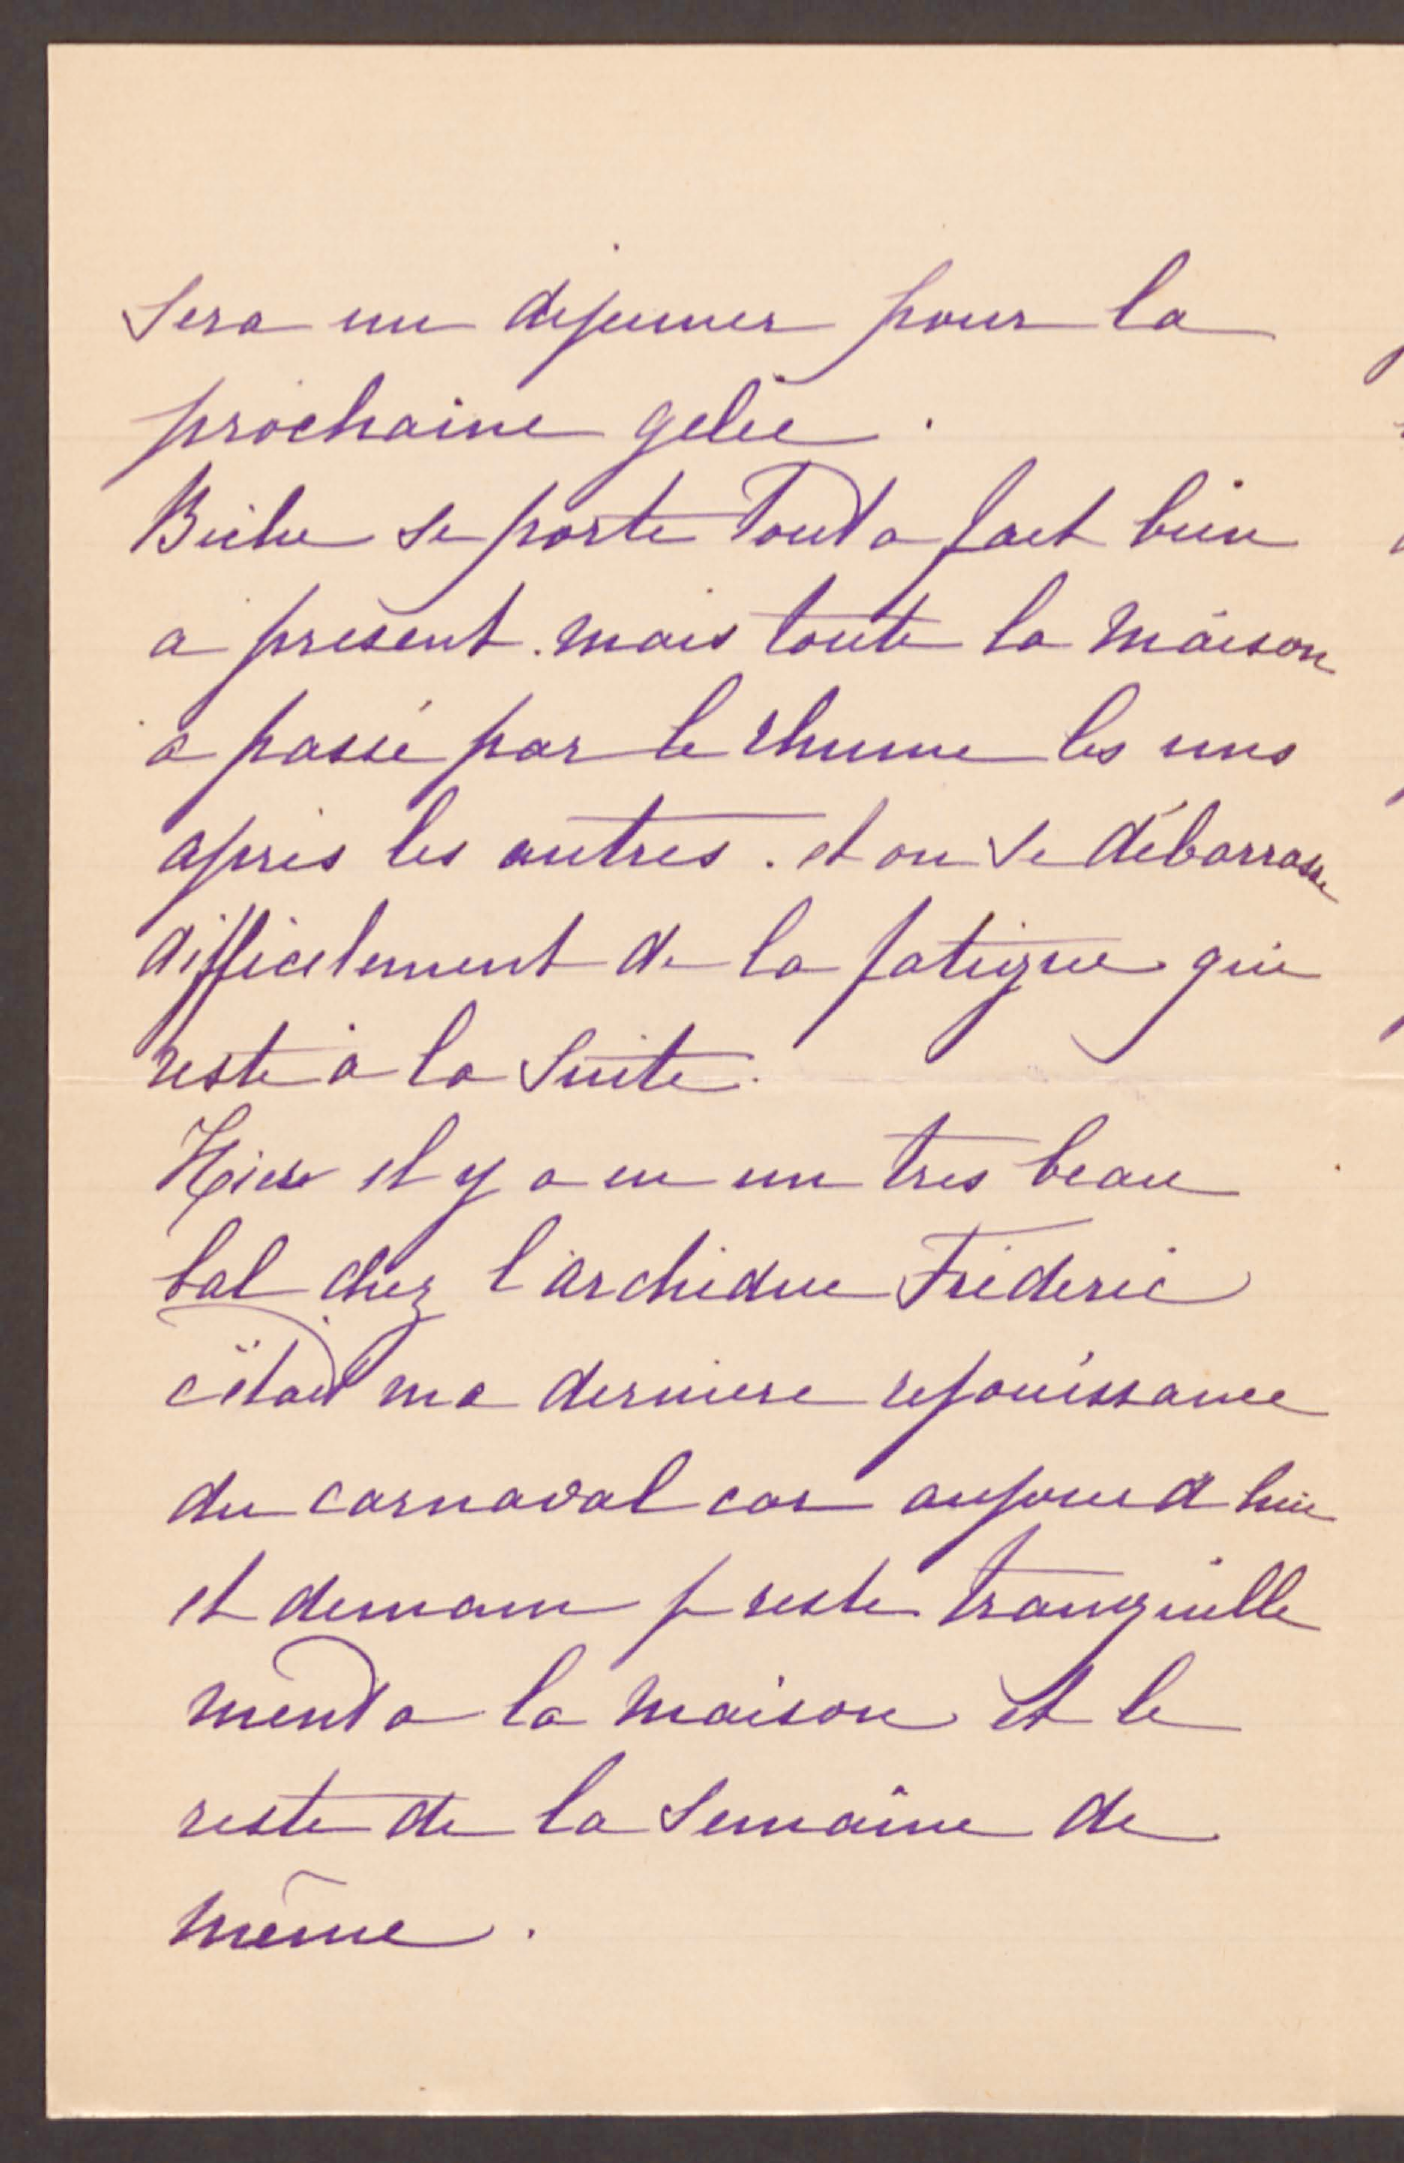 sera un dejeuner pour la
prochaine gelée.
Biche se porte tout a fait bien
a présent. mais toute la maison
a passé par le rhume les uns
apres les autres. et on se débarrasse
difficilement de la fatigue qui
reste à la suite.
Hier il y a eu un tres beau
bal chez l'archiduc Fréderic
c'était ma derniere rejouissance
du carnaval car aujourd hui
et demain je reste tranquille
ment a la maison et le
reste de la semaine de
même.